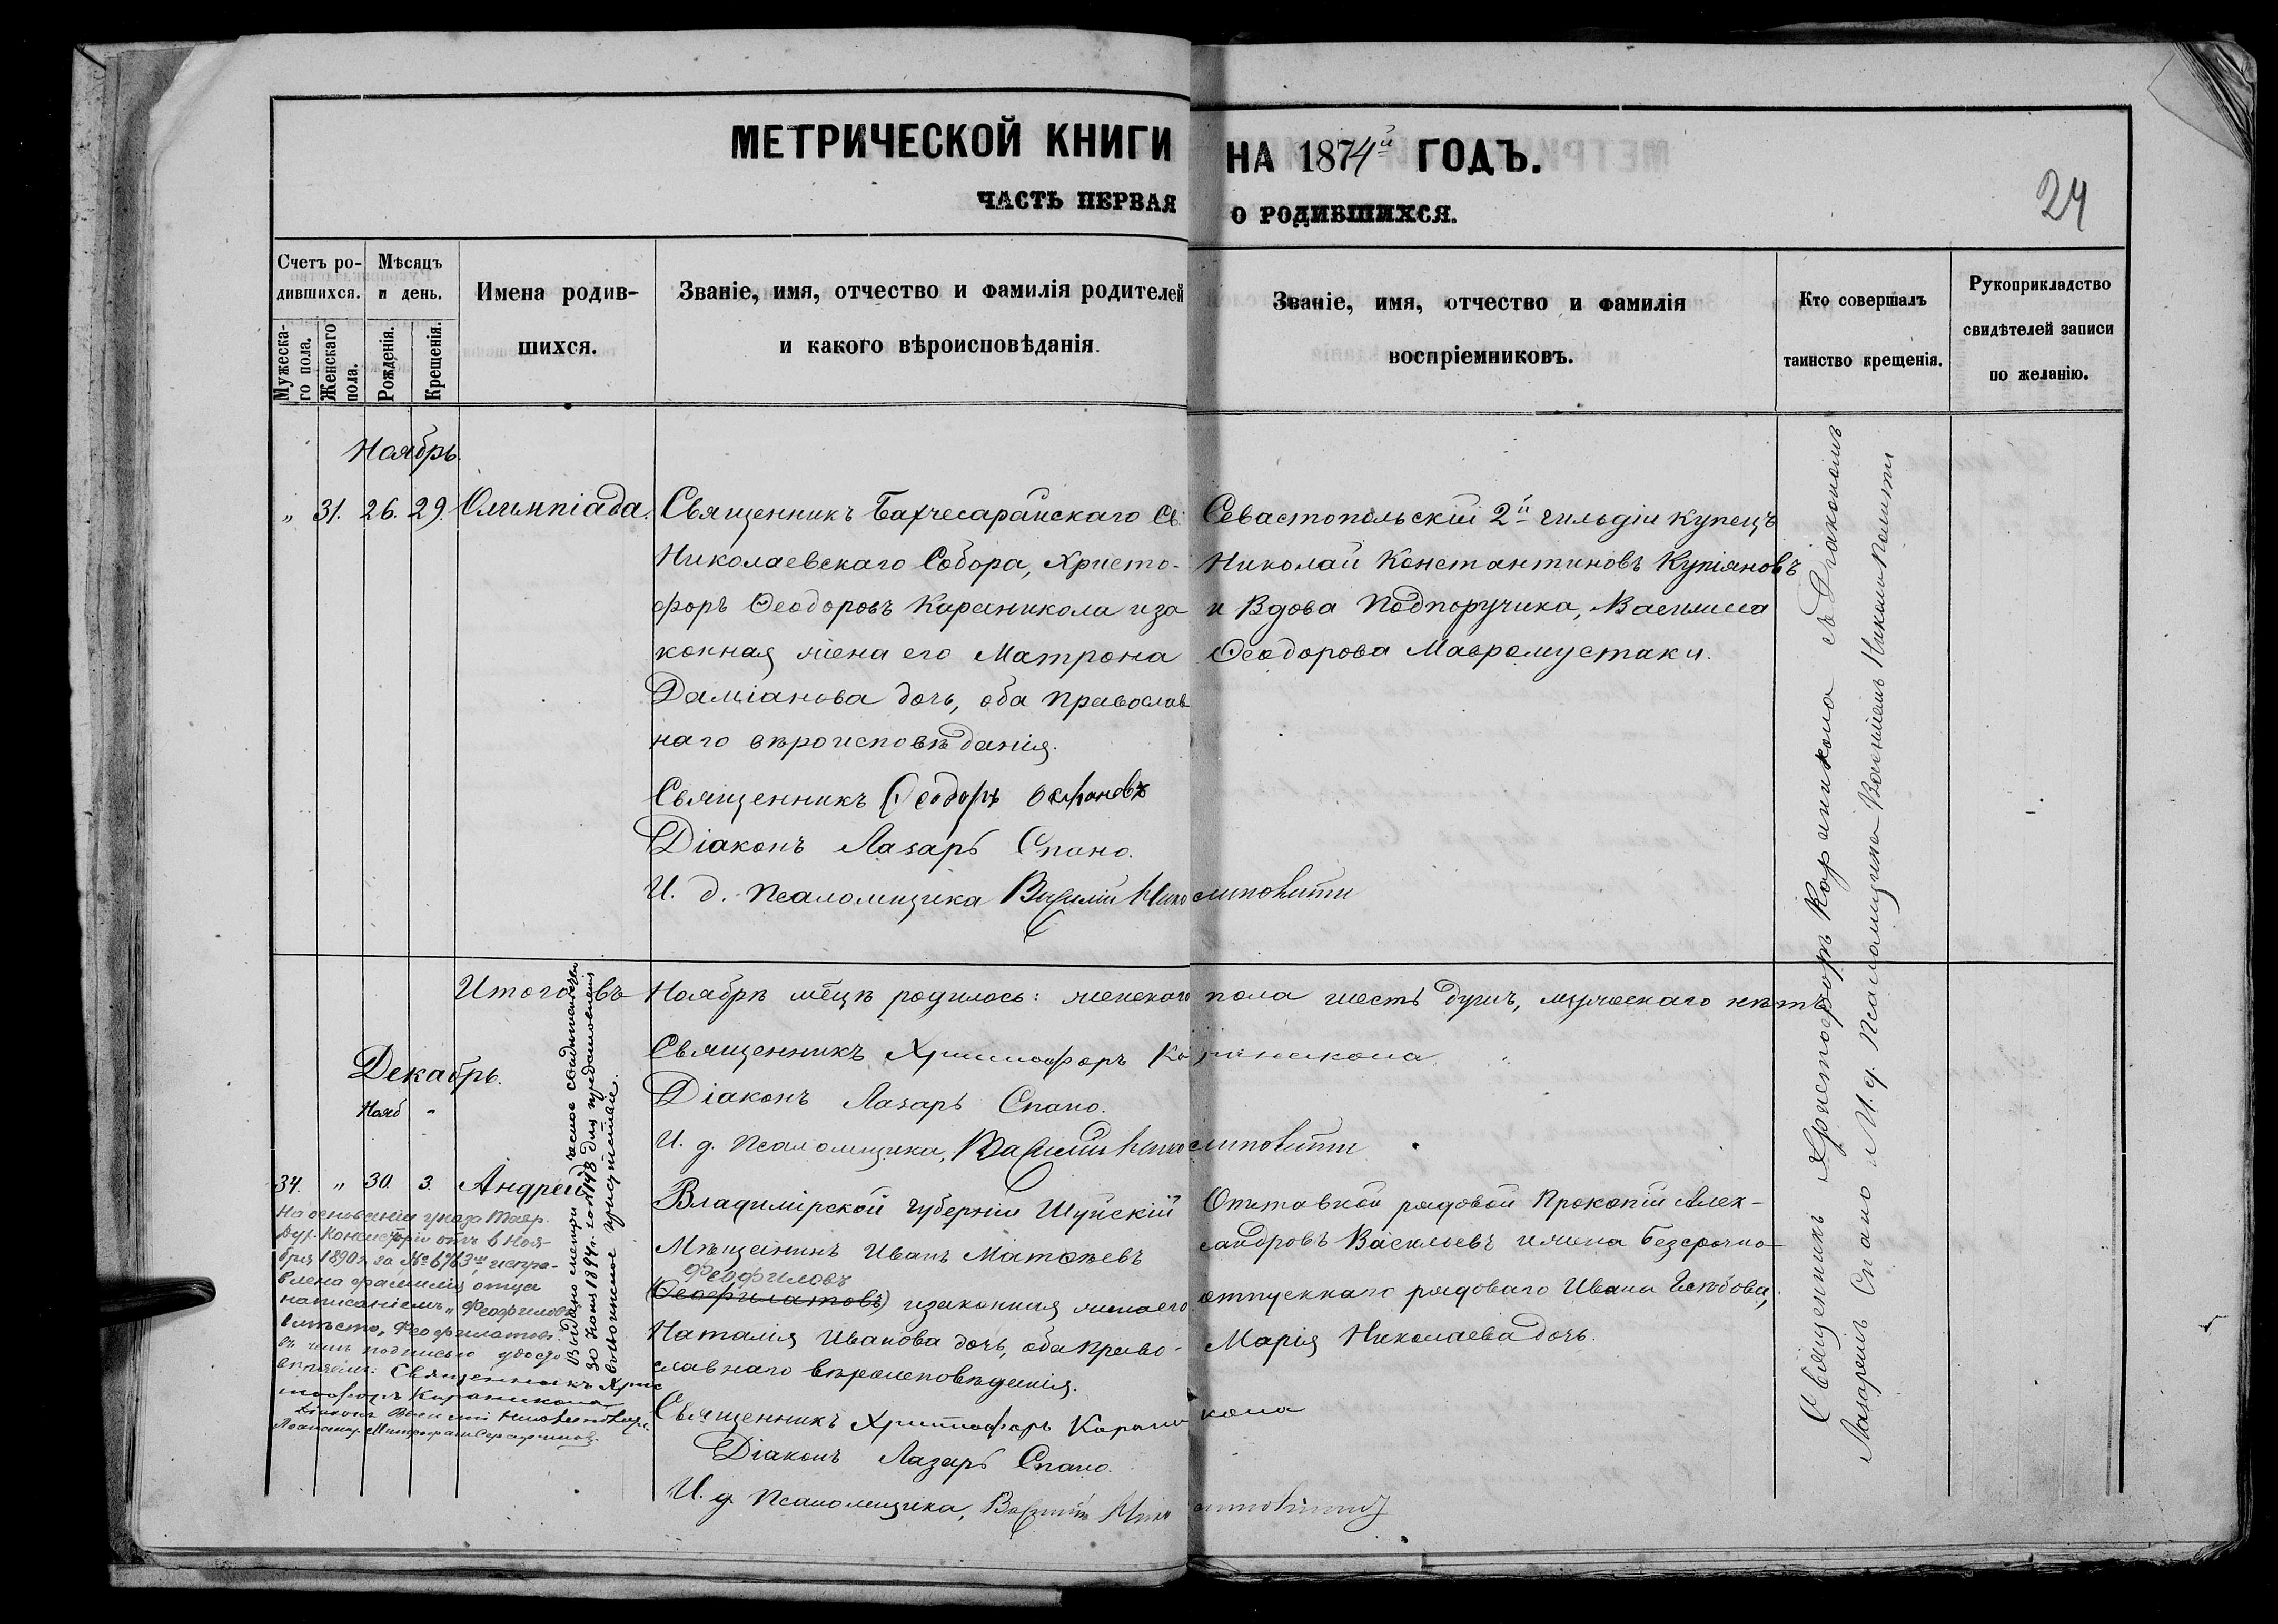 МЕТРИЧЕСКОЙ КНИГИ НА 1874й ГОДЪ.
ЧАСТЬ ПЕРВАЯ О РОДИВШИХСЯ.
24
Счетъ ро-
дившихся.
Мужеска-
го пола.
Женскаго
пола.
Мѣсяцъ
и день.
Рожденія.
Крещенія.
Имена родив-
шихся.
Званіе, имя, отчество и фамилія родителей
и какого вѣроисповѣданія.
Званіе, имя, отчество и фамилія
воспріемниковъ.
Кто совершалъ
таинство крещенія.
Рукоприкладство
свидѣтелей записи
по желанію.
Ноябрь.
„ 31. 26. 29. Олимпіада.
Священникъ Бахчесарайскаго Св.
Николаевскаго Собора, Христо-
форъ Ѳеодоровъ Караникола и за
конная жена его Матрона
Даміанова дочь, оба православ
наго вѣроисповѣданія.
Священникъ Ѳеодоръ
Діаконъ Лазарь Спано.
И. д. Псаломщика Василій
Севастопольскій 2й гильдіи купецъ
Николай Константиновъ Купіяновъ
и Вдова Подпоручика, Василиса
Ѳеодорова Мавромустаки.
Священникъ Христофоръ Караникола съ Діакономъ
Лазаремъ Спано и И. д. Псаломщика Василіемъ
Итого въ Ноябрѣ мѣцѣ родилось: женскаго пола шесть душъ, мужескаго нѣтъ.
Священникъ Христофоръ Караникола
Діаконъ Лазарь Спано.
И. д. Псаломщика, Василій
Декабрь.
Нояб „
34. „ 30. 3. Андрей
Владимірской губерніи Шуйскій
Мѣщанинъ Иванъ Матѳѣевъ
Феофиловъ
(Ѳеофилатовъ) и законная жена его
Наталія Иванова дочь, оба право-
славнаго вѣроисповѣданія.
Священникъ Христофоръ Караникола
Діаконъ Лазарь Спано.
И. д. Псаломщика, Василій
Отставной рядовой Прокопій Алек-
сандровъ Васильевъ и жена безсрочно-
отпускнаго рядоваго Ивана
Марія Николаева дочь.
На основаніи указа Тавр.
Дух. Консисторіи отъ 6 Ноя-
бря 1890 г. за № испра-
влена фамилія отца
написаніемъ „Феофиловъ
вмѣсто „Феофилатовъ
въ чемъ подписью удосто
вѣряемъ: Священникъ Хрис
тофоръ Караникола
Діаконъ Василій
Выдано метрическое свидѣтельство
30 Іюня 1894 г. за № 148 для представленія
въ воинское присутствіе.